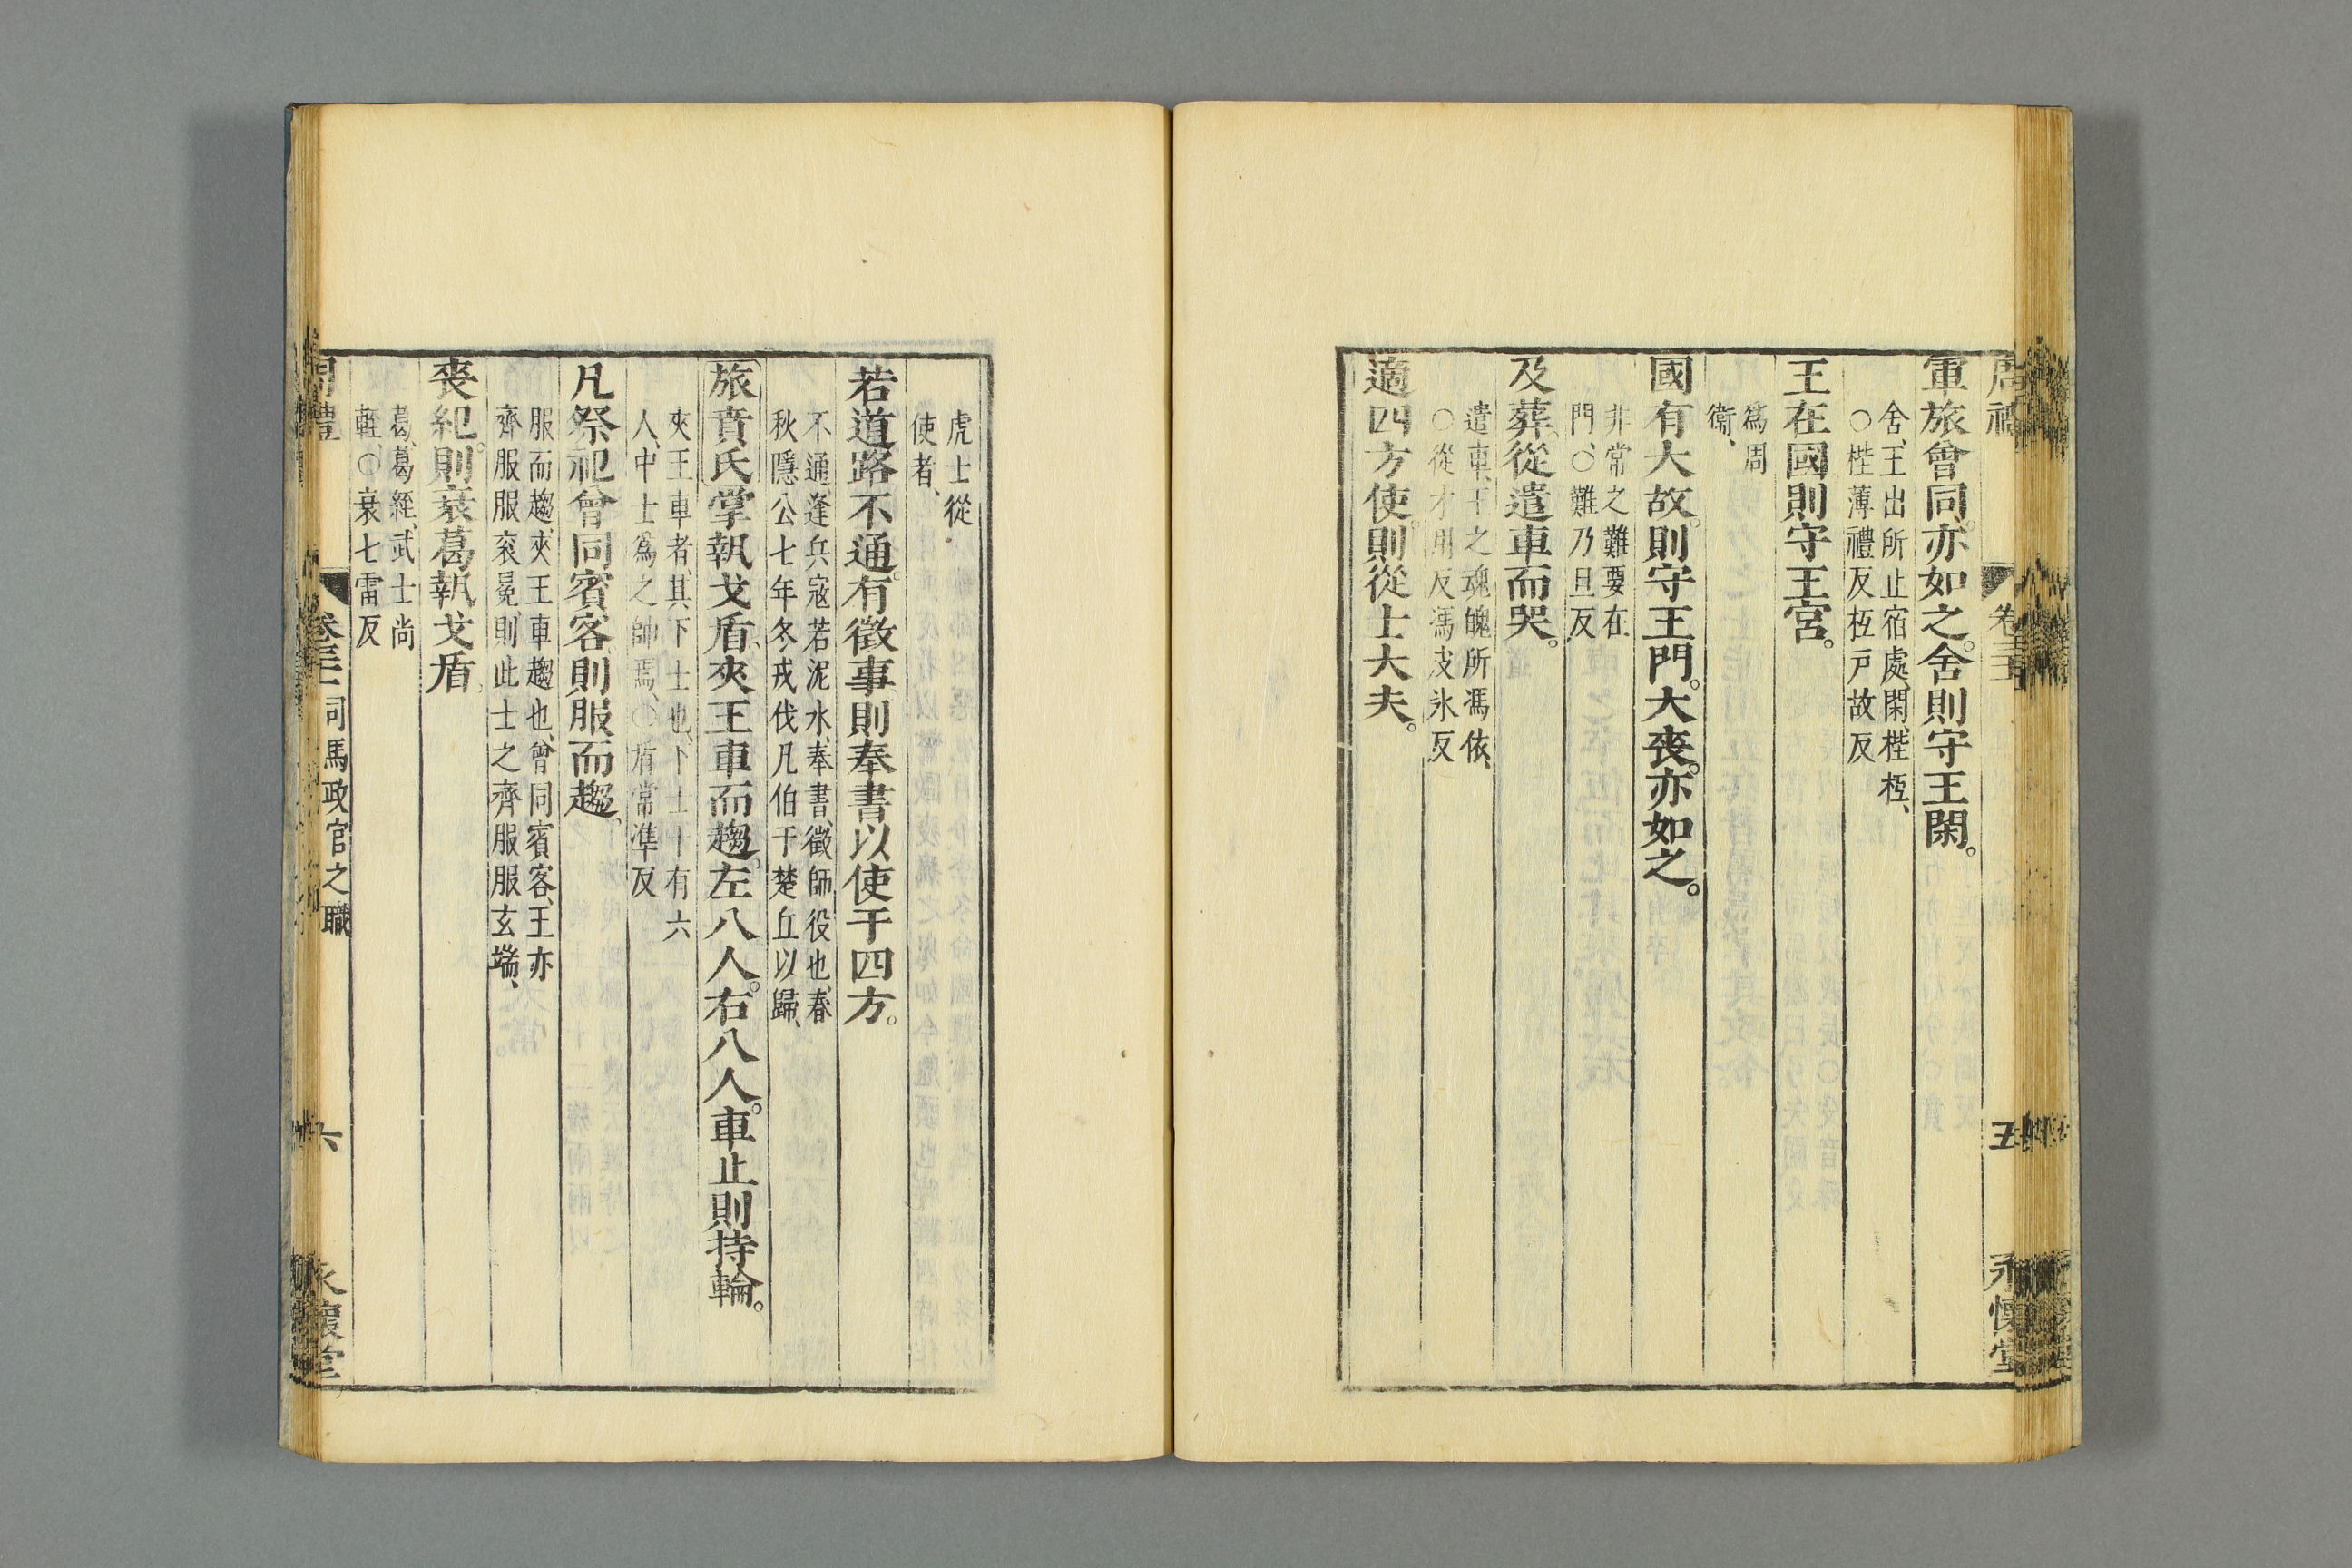 周禮 卷三十一 五 永懷堂
軍旅會同。亦如之。舍則守王閑。
舍、王出所止宿處、閑、梐枑、
○梐薄禮反枑戸故反
王在國則守王宮。
爲周
衞、
國有大故。則守王門。大喪。亦如之。
非常之難要在
門、○難乃旦反
及葬、從遣車而哭。
遣車、王之魂魄所馮依、
○從才用反馮皮氷反
適四方使。則從士大夫。
虎士從
使者、
若道路不通。有徵事則奉書以使于四方。
不通、逢兵寇若泥水、奉書、徵師役也、春
秋隱公七年冬戎伐凡伯于楚丘以歸、
旅賁氏掌執戈盾、夾王車而趨。左八人。右八人。車止則持輪。
夾王車者、其下士也、下士十有六
人、中士爲之帥焉、○盾常準反
凡祭祀會同賓客、則服而趨。
服而趨、夾王車趨也、會同賓客、王亦
齊服服衮冕、則此士之齊服服玄端、
喪紀。則衰葛執戈盾。
葛、葛絰、武士尚
輕○衰七雷反
周禮 卷三十一 司馬政官之職 六 永懷堂